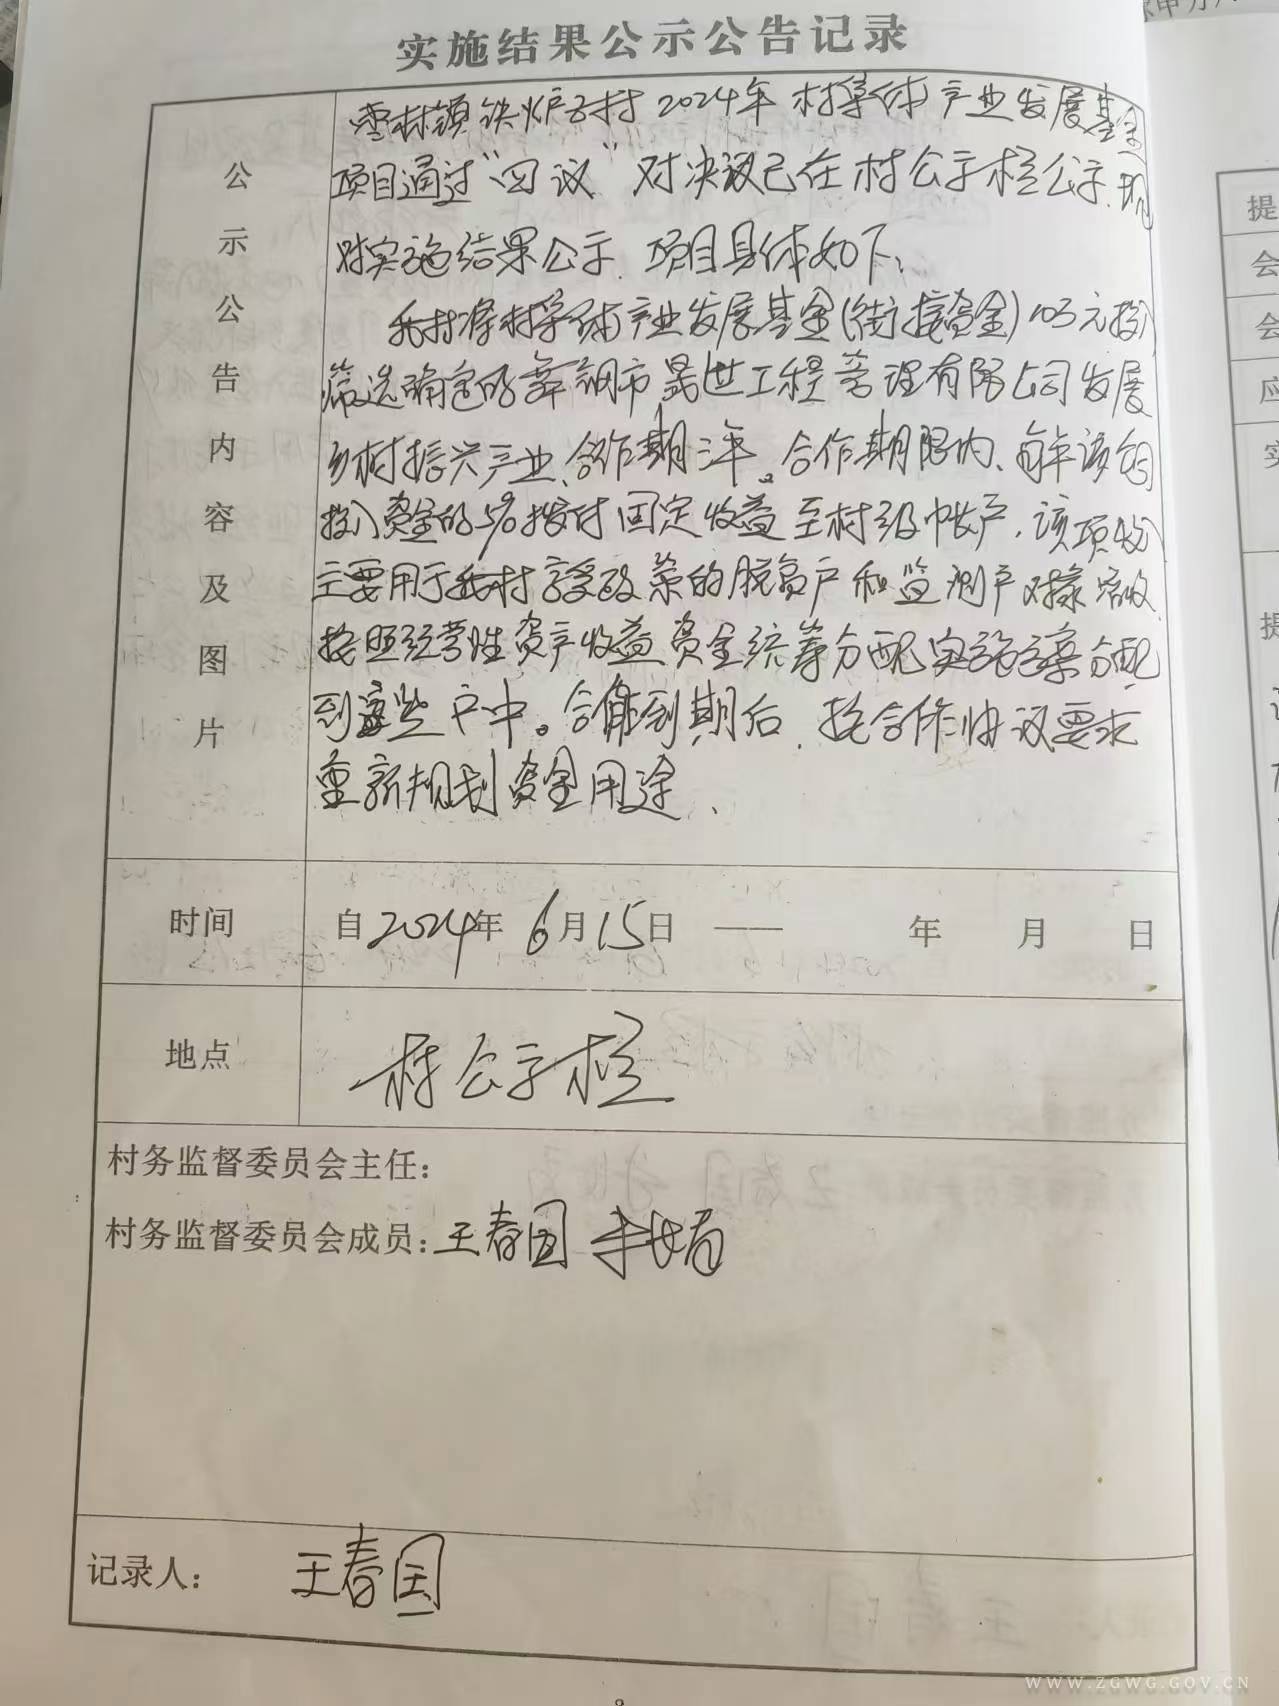 实施结果公示公告记录
公示公告内容及图片
铁炉子村2024年村集体产业发展基金
项目通过“四议”对决议已在村公示栏公示,现
对实施结果公示,项目具体如下:
我村将村集体产业发展基金(衔接资金)103万元投入
筛选确定的舞钢市晟世工程管理有限公司发展
乡村振兴产业、合作期三年。合作期限内、每年该公司
投入资金的5%拨付固定收益至村级账户,该项收入
主要用于我村享受政策的脱贫户和监测户对象增收
按照经营性资产收益资金统筹分配实施方案分配
到这些户中。合作到期后,按合作协议要求
重新规划资金用途、
时间
自2024年6月15日 —— 年 月 日
地点
村公示栏
村务监督委员会主任:
村务监督委员会成员:王春国
记录人: 王春国
WWW.ZGWG.GOV.CN